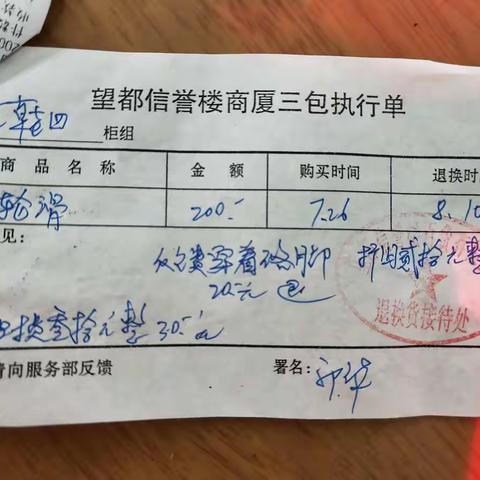 望都信誉楼商厦三包执行单
鞋四 柜组
商品名称 金额 购买时间 退换时
轮滑 200.- 7.26 8.10
见:
穿着硌脚 折旧贰拾元整
20元
叁拾元整 30.-
退换货接待处
向服务部反馈 署名: